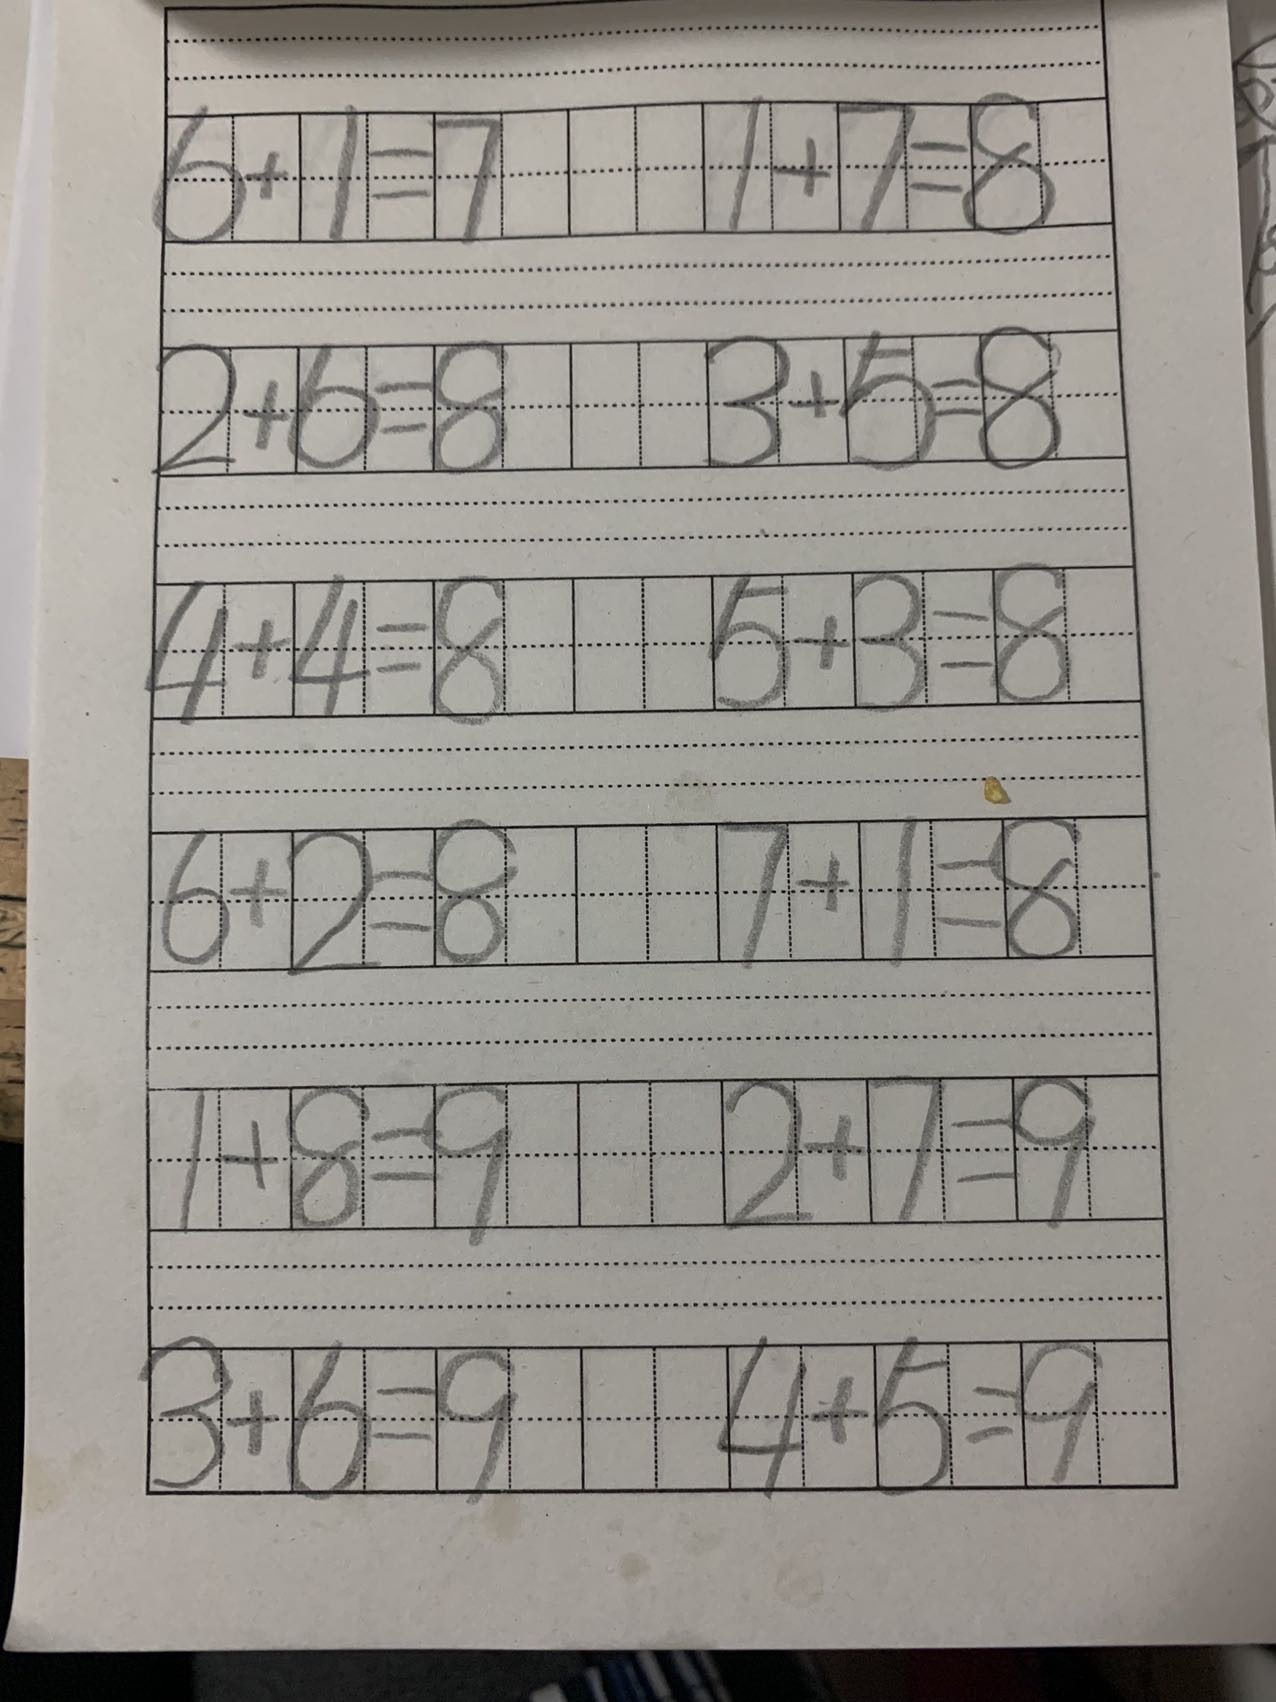 6+1=7 1+7=8
2+6=8 3+5=8
4+4=8 5+3=8
6+2=8 7+1=8
1+8=9 2+7=9
3+6=9 4+5=9